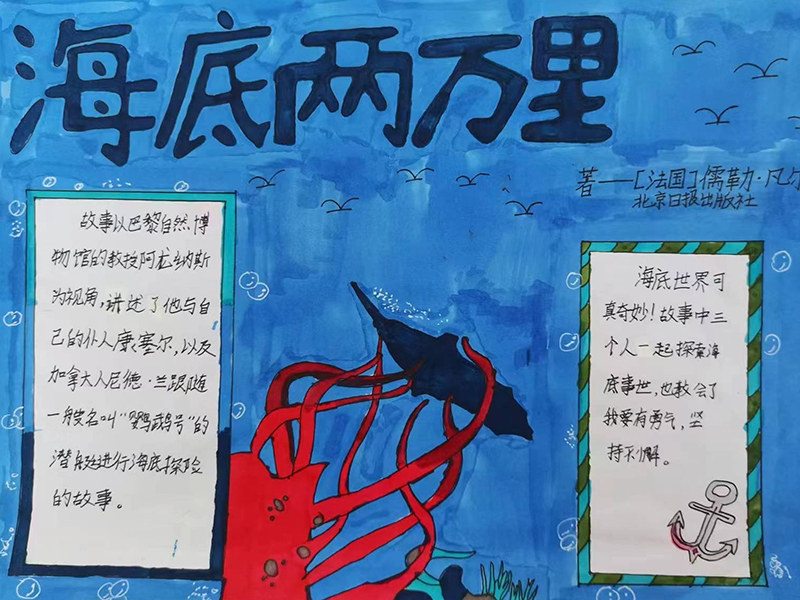 海底两万里
著——[法国]儒勒·凡尔
北京日报出版社
故事以巴黎自然博
物馆的教授阿龙纳斯
为视角,讲述了他与自
己的仆人康塞尔,以及
加拿大人尼德·兰跟随
一艘名叫“鹦鹉号”的
潜艇进行海底探险
的故事。
海底世界可
真奇妙!故事中三
个人一起探索海
底事世,也教会了
我要有勇气,坚
持不懈。